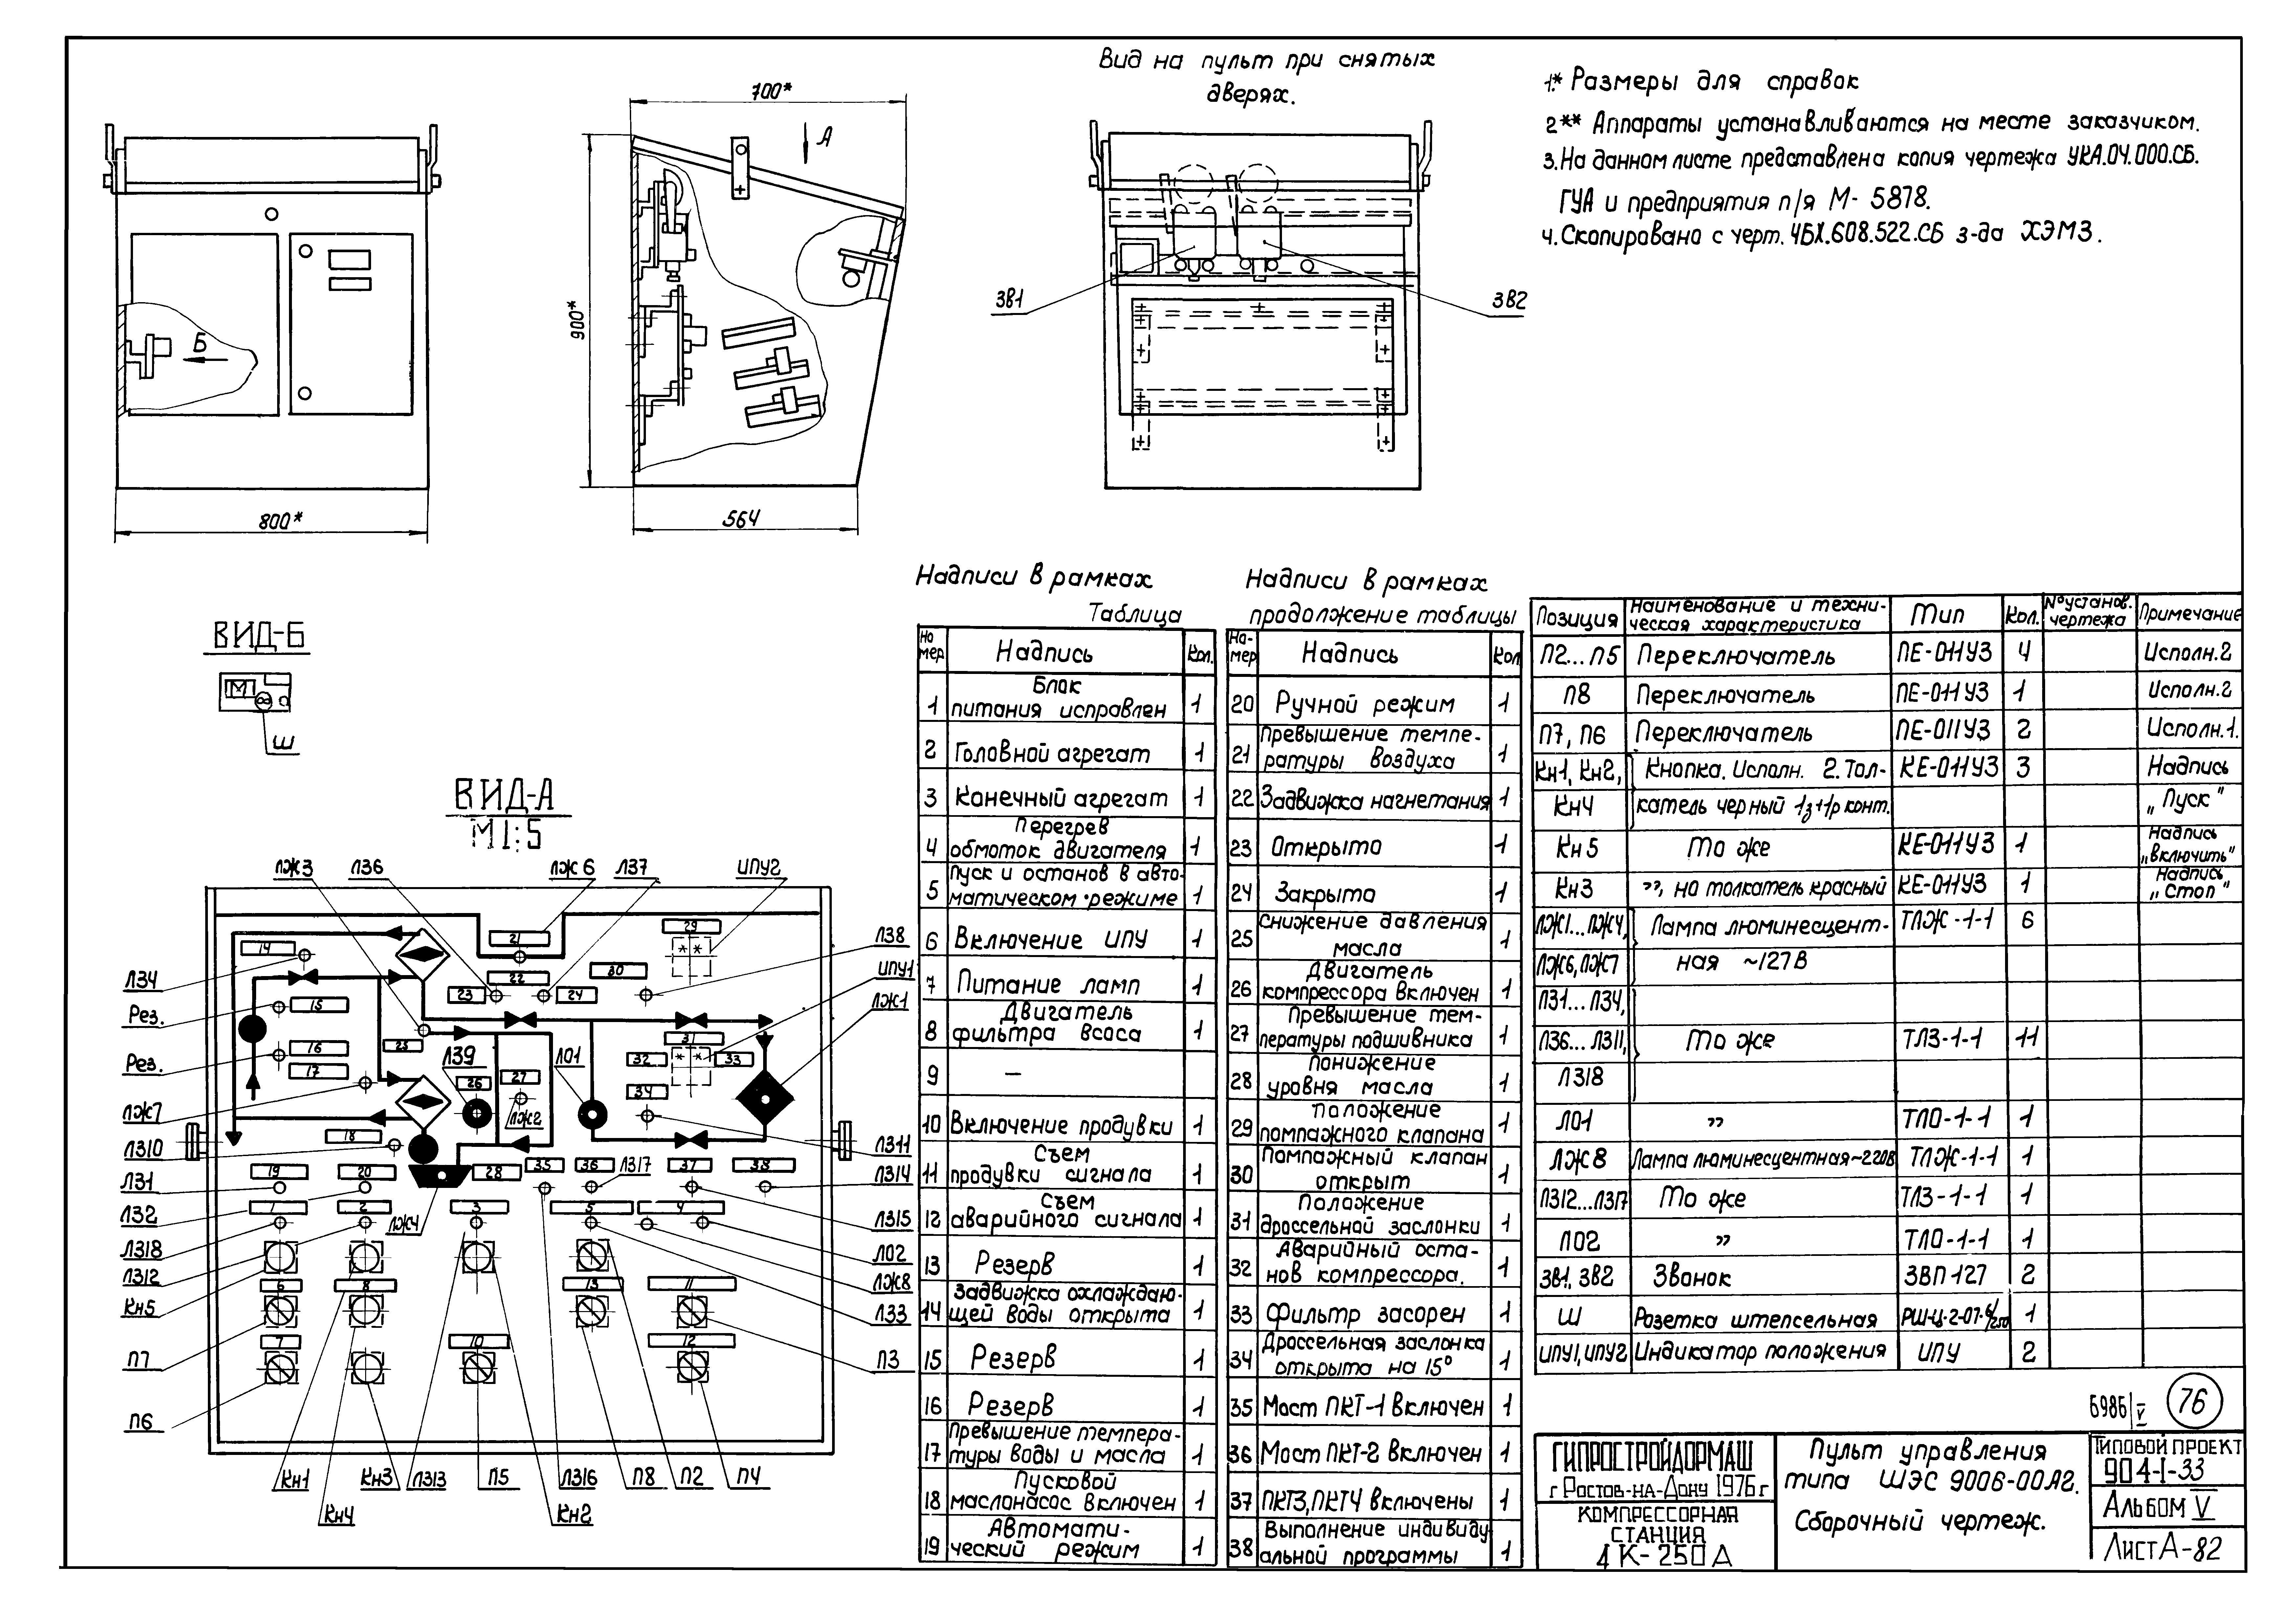 Вид на пульт при снятых
дверях.
1.* Размеры для справок
2** Аппараты устанавливаются на месте заказчиком.
3. На данном листе представлена копия чертежа УКА.04.000.СБ.
ГУА и предприятия п/я М-5878.
4. Скопировано с черт. 4БХ.608.522.СБ з-да ХЭМЗ.
700*
А
900*
Б
800*
564
ЗВ1
ЗВ2
ВИД-Б
М1
Ш
ВИД-А
М1:5
ЛЖ3
ЛЗ6
ЛЖ6
ЛЗ7
ИПУ2
ЛЗ8
ИПУ1
ЛЖ1
ЛЗ4
Рез.
Рез.
ЛЖ7
ЛЗ10
ЛЗ1
ЛЗ2
ЛЗ18
ЛЗ12
Кн5
П7
П6
ЛЗ9
ЛО1
ЛЖ2
ЛЖ4
ЛЗ17
ЛЗ11
ЛЗ14
ЛЗ15
ЛО2
ЛЖ8
ЛЗ3
П3
Кн1
Кн4
Кн3
ЛЗ13
П5
Кн2
ЛЗ16
П8
П2
П4
14
15
16
17
18
19
20
21
22
23
24
25
26
27
28
29
30
31
32
33
34
35
36
37
38
1
2
3
5
4
6
8
13
11
7
10
12
Надписи в рамках
Таблица
Но мер Надпись Кол.
1 Блок питания исправлен 1
2 Головной агрегат 1
3 Конечный агрегат 1
4 Перегрев обмоток двигателя 1
5 Пуск и останов в автоматическом режиме 1
6 Включение ИПУ 1
7 Питание ламп 1
8 Двигатель фильтра всоса 1
9 – 1
10 Включение продувки 1
11 Съем продувки сигнала 1
12 Съем аварийного сигнала 1
13 Резерв 1
14 Задвижка охлаждающей воды открыта 1
15 Резерв 1
16 Резерв 1
17 Превышение температуры воды и масла 1
18 Пусковой маслонасос включен 1
19 Автоматический режим 1
Надписи в рамках
продолжение таблицы
На-мер Надпись Кол
20 Ручной режим 1
21 Превышение температуры воздуха 1
22 Задвижка нагнетания 1
23 Открыто 1
24 Закрыто 1
25 Снижение давления масла 1
26 Двигатель компрессора включен 1
27 Превышение температуры подшивника 1
28 Понижение уровня масла 1
29 Положение помпажного клапана 1
30 Помпажный клапан открыт 1
31 Положение дроссельной заслонки 1
32 Аварийный останов компрессора. 1
33 Фильтр засорен 1
34 Дроссельная заслонка открыта на 15° 1
35 Мост ПКТ-1 включен 1
36 Мост ПКТ-2 включен 1
37 ПКТ3, ПКТ4 включены 1
38 Выполнение индивидуальной программы 1
Позиция Наименование и техническая характеристика Тип Кол. № установ. чертежа Примечание
П2...П5 Переключатель ПЕ-011У3 4 Исполн.2
П8 Переключатель ПЕ-011У3 1 Исполн.2
П7, П6 Переключатель ПЕ-011У3 2 Исполн.1.
Кн1, Кн2, Кнопка. Исполн. 2. Тол- КЕ-011У3 3 Надпись
Кн4 катель черный 1з+1р конт. „Пуск"
Кн5 То же КЕ-011У3 1 Надпись „Включить"
Кн3 ”, но толкатель красный КЕ-011У3 1 Надпись „Стоп"
ЛЖ1...ЛЖ4, Лампа люминесцент- ТЛЖ-1-1 6
ЛЖ6, ЛЖ7 ная ~127В
ЛЗ1...ЛЗ4,
ЛЗ6...ЛЗ11, То же ТЛЗ-1-1 11
ЛЗ18
ЛО1 ” ТЛО-1-1 1
ЛЖ8 Лампа люминесцентная ~220В ТЛЖ-1-1 1
ЛЗ12...ЛЗ17 То же ТЛЗ-1-1 1
ЛО2 ” ТЛО-1-1 1
ЗВ1, ЗВ2 Звонок ЗВП-127 2
Ш Розетка штепсельная РШ-Ц-2-07-6/250 1
ИПУ1, ИПУ2 Индикатор положения ИПУ 2
6986/V
76
ГИПРОСТРОЙДОРМАШ
г. Ростов-на-Дону 1976г
КОМПРЕССОРНАЯ
СТАНЦИЯ
4К-250А
Пульт управления
типа ШЭС 9006-00А2.
Сборочный чертеж.
Типовой проект
904-1-33
Альбом V
Лист А-82